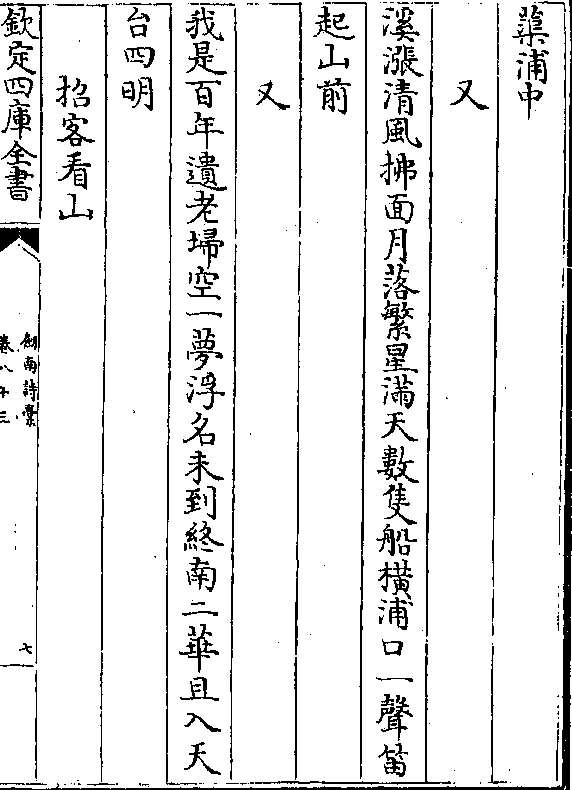 蕖浦中
又
溪漲清風拂面月落繁星滿天數隻船橫浦口一聲笛
起山前
又
我是百年遺老埽空一夢浮名未到終南二華且入天
台四明
招客看山
欽定四庫全書
劍南詩稾
卷八十三
七